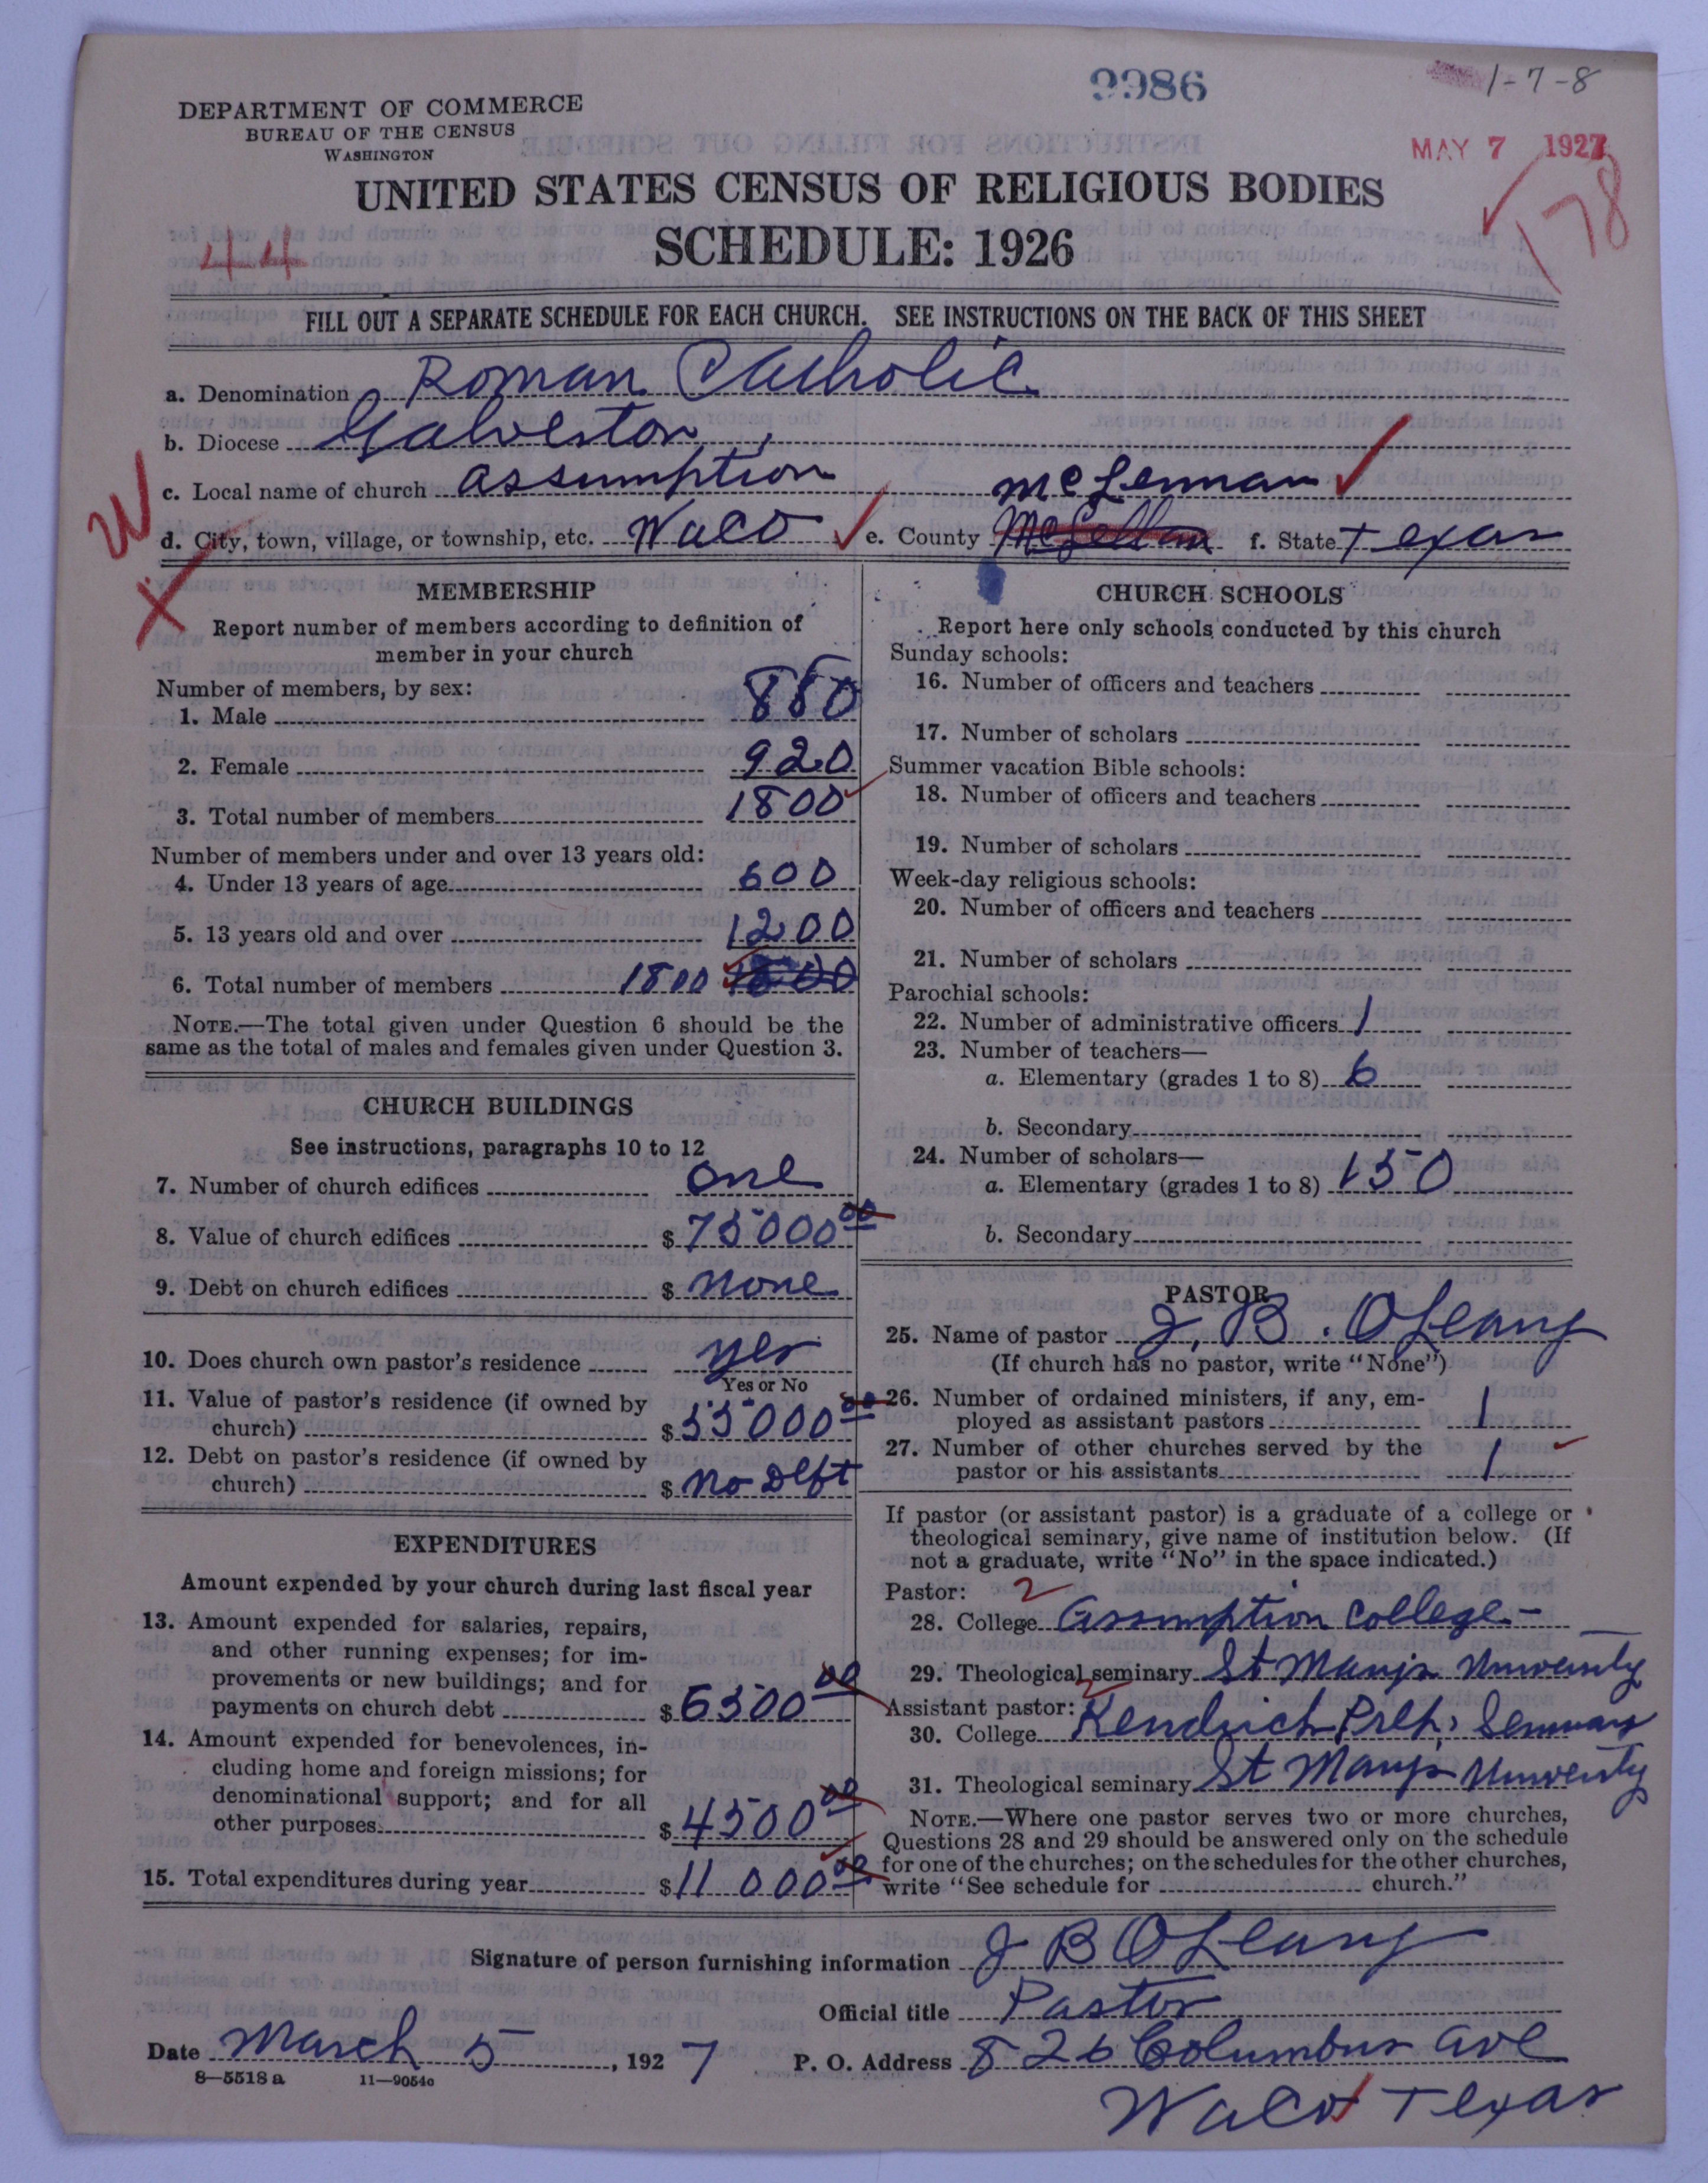 9986
1-7-8
DEPARTMENT OF COMMERCE
BUREAU OF THE CENSUS
WASHINGTON
MAY 7 1927
178
UNITED STATES CENSUS OF RELIGIOUS BODIES
44
SCHEDULE: 1926
FILL OUT A SEPARATE SCHEDULE FOR EACH CHURCH. SEE INSTRUCTIONS ON THE BACK OF THIS SHEET
a. Denomination Roman Catholic
b. Diocese Galveston,
c. Local name of church Assumption McLennan
W
d. City, town, village, or township, etc. Waco e. County f. State Texas
X
MEMBERSHIP
Report number of members according to definition of
member in your church
Number of members, by sex:
1. Male 880
2. Female 920
3. Total number of members 1800
Number of members under and over 13 years old:
4. Under 13 years of age 600
5. 13 years old and over 1200
6. Total number of members 1800
NOTE.—The total given under Question 6 should be the
same as the total of males and females given under Question 3.
CHURCH BUILDINGS
See instructions, paragraphs 10 to 12
7. Number of church edifices one
8. Value of church edifices $ 75000 00
9. Debt on church edifices $ none
10. Does church own pastor's residence yes
Yes or No
11. Value of pastor's residence (if owned by
church) $ 35000 00
12. Debt on pastor's residence (if owned by
church) $ no Debt
EXPENDITURES
Amount expended by your church during last fiscal year
13. Amount expended for salaries, repairs,
and other running expenses; for im-
provements or new buildings; and for
payments on church debt $ 6500 00
14. Amount expended for benevolences, in-
cluding home and foreign missions; for
denominational support; and for all
other purposes. $ 4500 00
15. Total expenditures during year $ 11000 00
CHURCH SCHOOLS
Report here only schools conducted by this church
Sunday schools:
16. Number of officers and teachers
17. Number of scholars
Summer vacation Bible schools:
18. Number of officers and teachers
19. Number of scholars
Week-day religious schools:
20. Number of officers and teachers
21. Number of scholars
Parochial schools:
22. Number of administrative officers 1
23. Number of teachers—
a. Elementary (grades 1 to 8) 6
b. Secondary
24. Number of scholars—
a. Elementary (grades 1 to 8) 150
b. Secondary
PASTOR
25. Name of pastor J. B. O'Leary
(If church has no pastor, write "None")
26. Number of ordained ministers, if any, em-
ployed as assistant pastors 1
27. Number of other churches served by the
pastor or his assistants 1
If pastor (or assistant pastor) is a graduate of a college or
theological seminary, give name of institution below. (If
not a graduate, write "No" in the space indicated.)
Pastor: 2
28. College Assumption College—
29. Theological seminary St Mary's University
Assistant pastor: 2
30. College Kendrick Prep. Seminary
31. Theological seminary St Mary's University
NOTE.—Where one pastor serves two or more churches,
Questions 28 and 29 should be answered only on the schedule
for one of the churches; on the schedules for the other churches,
write "See schedule for church."
Signature of person furnishing information J B O'Leary
Official title Pastor
Date March 5, 1927 P. O. Address 826 Columbus Ave
8—5518 a 11—9054c
Waco Texas